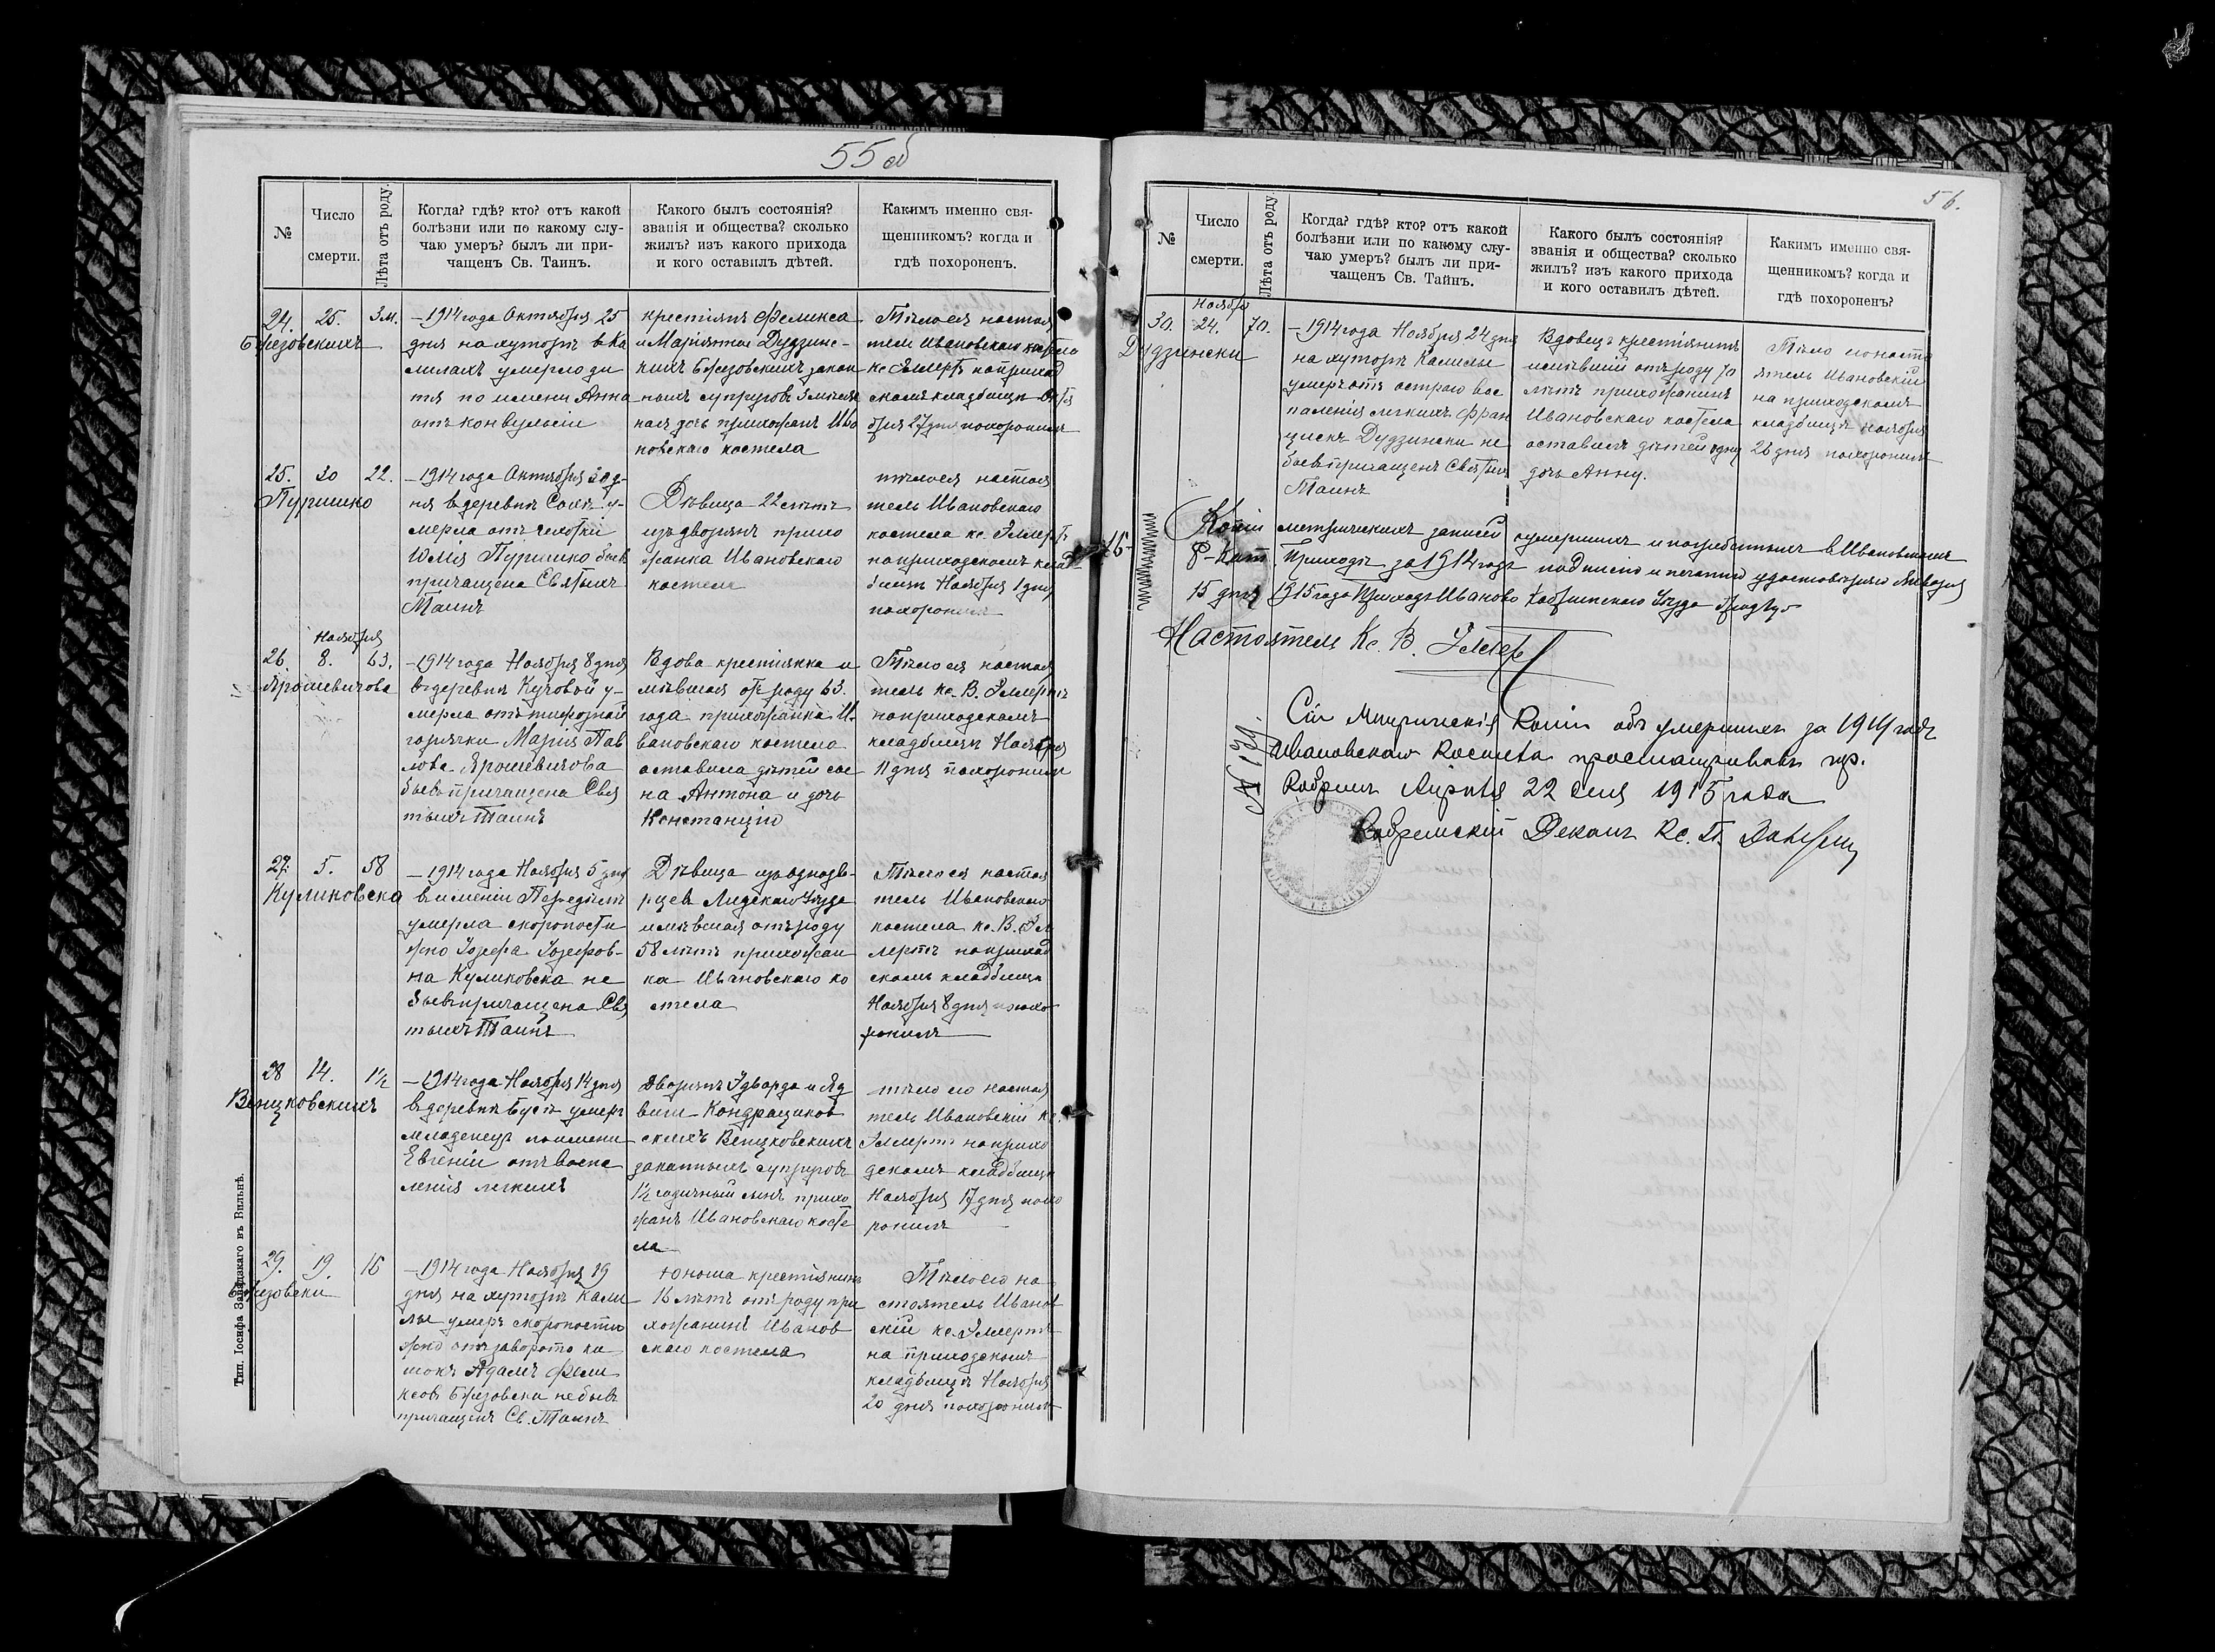 55 об
№
Число
смерти.
Лѣта отъ роду.
Когда? гдѣ? кто? отъ какой
болѣзни или по какому слу-
чаю умеръ? былъ ли при-
чащенъ Св. Таинъ.
Какого былъ состоянія?
званія и общества? сколько
жилъ? изъ какого прихода
и кого оставилъ дѣтей.
Какимъ именно свя-
щенникомъ? когда и
гдѣ похороненъ.
24. 25. 3 м.
Брезовскихъ
— 1914 года Октября 25
дня на хуторѣ въ Ка
лилахъ умерло ди
тя по имени Анна
отъ конвульсіи
крестіянъ Феликса
и Маріянны Дудзинс-
кихъ Брезовскихъ закон
ныхъ супруговъ 3 мѣсяч
ная дочь прихожанъ Ива
новскаго костела
Тѣло ея настоя
тель Ивановскаго костела
кс. Эллертъ на приход
скомъ кладбищѣ Октя
бря 27 дня похоронилъ
25. 30 22.
Пуришко
— 1914 года Октября 30 д-
ня въ деревнѣ у-
мерла отъ чахотки
Юлія Пуришко бывъ
причащена Святыхъ
Таинъ
Дѣвица 22 лѣтъ
изъ дворянъ прихо
жанка Ивановскаго
костела
тѣло ея настоя
тель Ивановскаго
костела кс. Эллертъ
на приходскомъ клад-
бищѣ Ноября 1 дня
похоронилъ
Ноября
26. 8. 63.
Ярошевичова
— 1914 года Ноября 8 дня
въ деревнѣ Кужовой у-
мерла отъ тифозной
горячки Марія Пав
лова Ярошевичова
бывъ причащена Свя
тыхъ Таинъ
Вдова крестіянка и
мѣвшая отъ роду 63.
года прихожанка И-
вановскаго костела
оставила дѣтей сы
на Антона и дочь
Констанцію
Тѣло ея настоя
тель кс. В. Эллертъ
на приходскомъ
кладбищѣ Ноября
11 дня похоронилъ
27. 5. 58
Куликовска
— 1914 года Ноября 5 дня
въ имѣніи
умерла скоропости
жно Іозефа Іозефов-
на Куликовска не
бывъ причащена Свя
тыхъ Таинъ
Дѣвица изъ однодв-
рцевъ Лидскаго Уѣзда
имѣвшая отъ роду
58 лѣтъ прихожан
ка Ивановскаго ко
стела
Тѣло ея настоя
тель Ивановскаго
костела кс. В. Эл
лертъ на приход
скомъ кладбищѣ
Ноября 8 дня похо
ронилъ
28 14. 1½
Венцковскихъ
— 1914 года Ноября 14 дня
въ деревнѣ умеръ
младенецъ по имени
Евгеній отъ воспа
ленія легкихъ
Дворянъ Эдварда и Яд
виги Кондрациков
скихъ Венцковскихъ
законныхъ супруговъ
1½ годичный сынъ прихо
жанъ Ивановскаго косте
ла
тѣло его настоя
тель Ивановскій кс.
Эллертъ на прихо
дскомъ кладбищѣ
Ноября 17 дня похо
ронилъ
29. 19. 16
Брезовски
— 1914 года Ноября 19
дня на хуторѣ Кали
лы умеръ скоропости
жно отъ заворота ки
шокъ Адамъ Фели
ксовъ Брезовски не бывъ
причащенъ Св. Таинъ
Юноша крестіянинъ
16 лѣтъ отъ роду при
хожанинъ Иванов
скаго костела
Тѣло его на
стоятель Иванов
скій кс. Эллертъ
на приходскомъ
кладбищѣ Ноября
20 дня похоронилъ
Тип. Іосифа Завадзкаго въ Вильнѣ.
56.
№
Число
смерти.
Лѣта отъ роду.
Когда? гдѣ? кто? отъ какой
болѣзни или по какому слу-
чаю умеръ? былъ ли при-
чащенъ Св. Тайнъ.
Какого былъ состоянія?
званія и общества? сколько
жилъ? изъ какого прихода
и кого оставилъ дѣтей.
Какимъ именно свя-
щенникомъ? когда и
гдѣ похороненъ?
Ноября
30. 24. 70.
Дудзински
— 1914 года Ноября 24 дня
на хуторѣ Калилы
умеръ отъ остраго вос
паленія легкихъ Фран
цискъ Дудзински не
бывъ причащенъ Святыхъ
Таинъ
Вдовецъ крестіянинъ
имѣвшій отъ роду 70
лѣтъ прихожанинъ
Ивановскаго костела
оставилъ дѣтей одну
дочь Анну.
Тѣло его насто
ятель Ивановскій
на приходскомъ
кладбищѣ Ноября
26 дня похоронилъ
Копіи метрическихъ записей умершихъ и погребенныхъ въ Ивановскомъ
Р-Кат Приходѣ за 1914 годъ подписью и печатью удостовѣряю Января
15 дня 1915 года Приходъ Иваново Кобринскаго Уѣзда
Настоятель Кс. В. Эллертъ
№ 139.
Сіи Метрическія Копіи объ умершихъ за 1914 годъ
Ивановскаго Костела просматривалъ гор.
Кобринъ Апрѣля 22 дня 1915 года
Кобринскій Деканъ Кс.